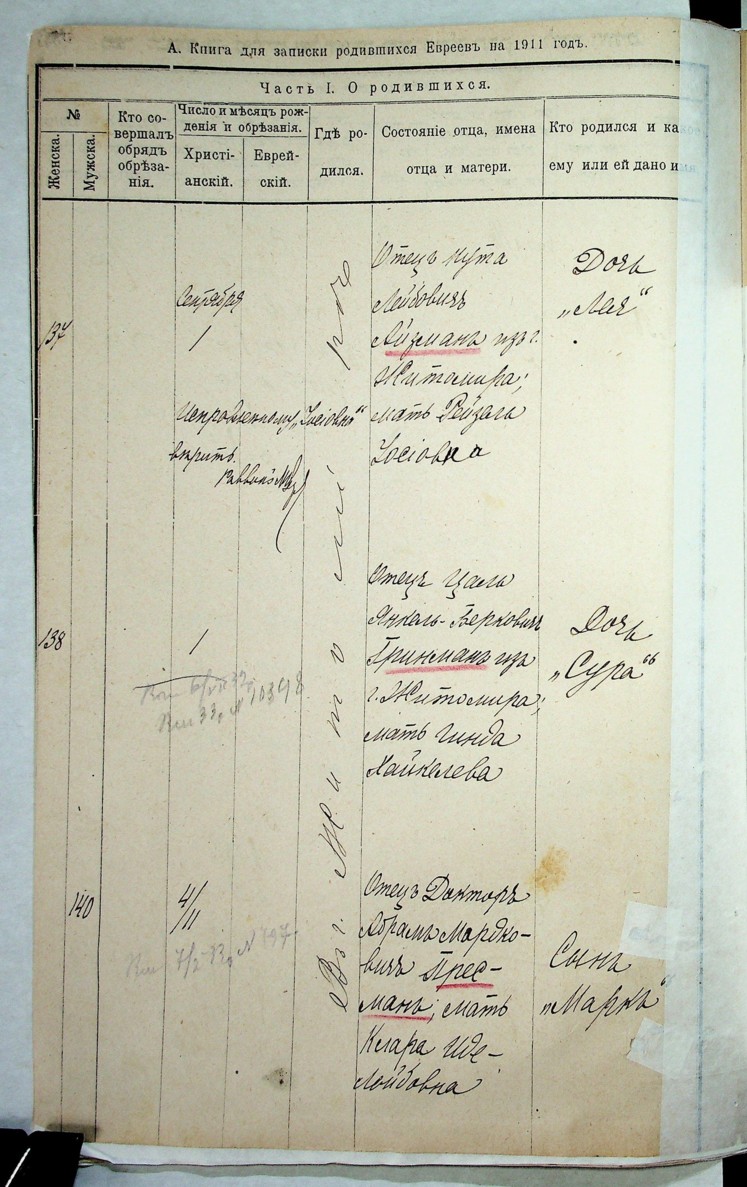 А. Книга для записки родившихся Евреевъ на 1911 годъ.
Часть I. О родившихся.
№
Женска.
Мужска.
Кто со-
вершалъ
обрядъ
обрѣза-
нія.
Число и мѣсяцъ рож-
денія и обрѣзанія.
Христі-
анскій.
Еврей-
скій.
Гдѣ ро-
дился.
Состояніе отца, имена
отца и матери.
Кто родился и ка
ему или ей дано и
137
Сентября
1
Отецъ Нута
Лейбовичъ
Айзманъ изъ г.
Житомира;
мать Рейзаль
Іосіовна
Дочь
„Лея“
„Іосіовна“
вѣрить.
138
1
Отецъ Цаль
Янкель-Берковичъ
Гринманъ изъ
г. Житомира;
мать Гинда
Хайкелева
Дочь
„Сура“
10348
140
4/11
Отецъ Докторъ
Абрамъ Мордко-
вичъ Прес-
манъ; мать
Клара Иде-
Лейбовна
Сынъ
„Маркъ“
Въ г. Житомірѣ